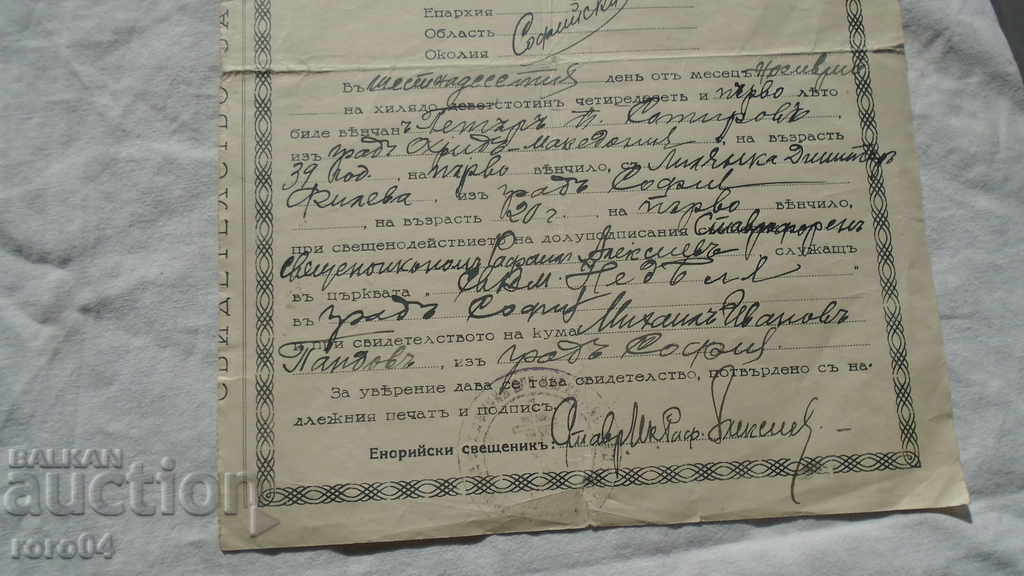 Епархия
Область
Околия Софийска
Въ шестнадесетия день отъ месецъ Ноемврий
на хилядо деветстотин четиредесеть и първо лѣто
биде вѣнчанъ Петъръ П. Сатировъ
изъ градъ Охридъ-Македония, на възрасть
39 год., на първо вѣнчило, съ Лилянка Димитъръ
Филева, изъ градъ София
, на възрасть 20 г., на първо вѣнчило,
при свещенодействието на долуподписания Ставрофоренъ
свещеноикономъ Рафаилъ Алексиевъ служащъ
въ църквата „ Недѣля "
въ градъ София
и при свидетелството на кума Михаилъ Ивановъ
Пандовъ, изъ градъ София
За увѣрение дава се това свидетелство, потвърдено съ на-
длежния печатъ и подписъ.
Енорийски свещеникъ: Ставр. Ик. Раф. Алексиев
СВИДЕТЕЛСТВО ЗА
BALKAN
auction
roro04